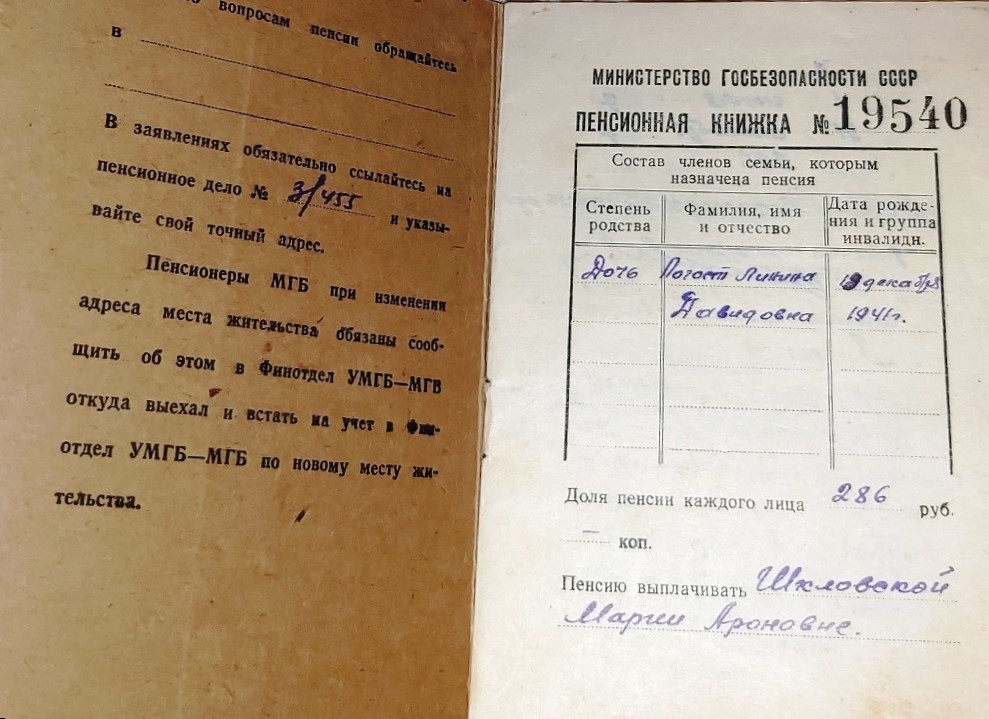 вопросам пенсии обращайтесь
в
В заявлениях обязательно ссылайтесь на
пенсионное дело № 3/455 и указы-
вайте свой точный адрес.
Пенсионеры МГБ при изменении
адреса места жительства обязаны сооб-
щить об этом в Финотдел УМГБ—МГБ
откуда выехал и встать на учет в Фин-
отдел УМГБ—МГБ по новому месту жи-
тельства.
МИНИСТЕРСТВО ГОСБЕЗОПАСНОСТИ СССР
ПЕНСИОННАЯ КНИЖКА № 19540
Состав членов семьи, которым
назначена пенсия
Степень
родства
Фамилия, имя
и отчество
Дата рожде-
ния и группа
инвалидн.
Дочь Погост Линина 19 декабря
Давидовна 1941г.
Доля пенсии каждого лица 286 руб.
— коп.
Пенсию выплачивать Шкловской
Марии Ароновне.